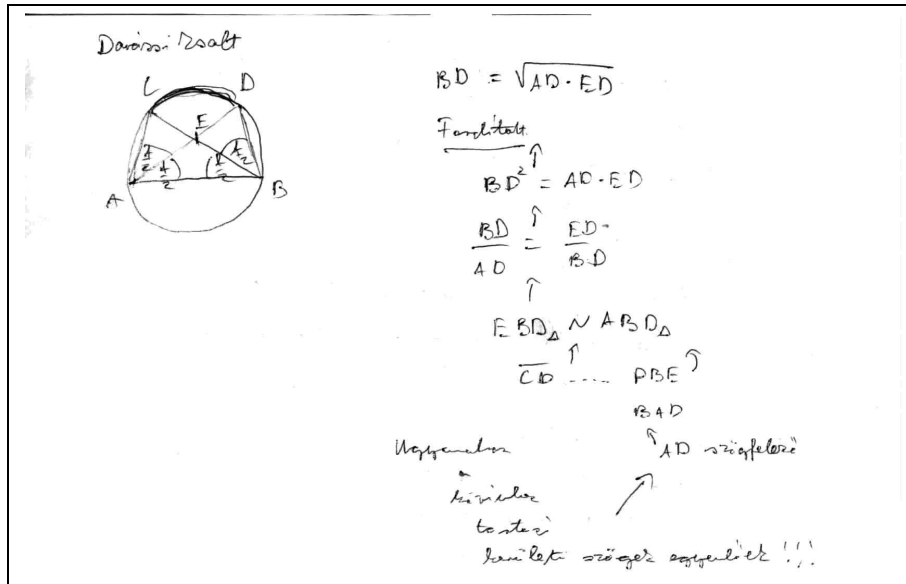 Zsolt
C D
E
A/2 A/2 A/2 A/2
A B
BD = √AD · ED
Fordított
↑
BD² = AD · ED
↑
BD/AD = ED/BD
↑
EBD△ ~ ABD△
↑ ↑
CD ..... DBE
BAD
↑
AD szögfelező
Ugyanahhoz
a
körívhez
tartozó
kerületi szögek egyenlőek !!!